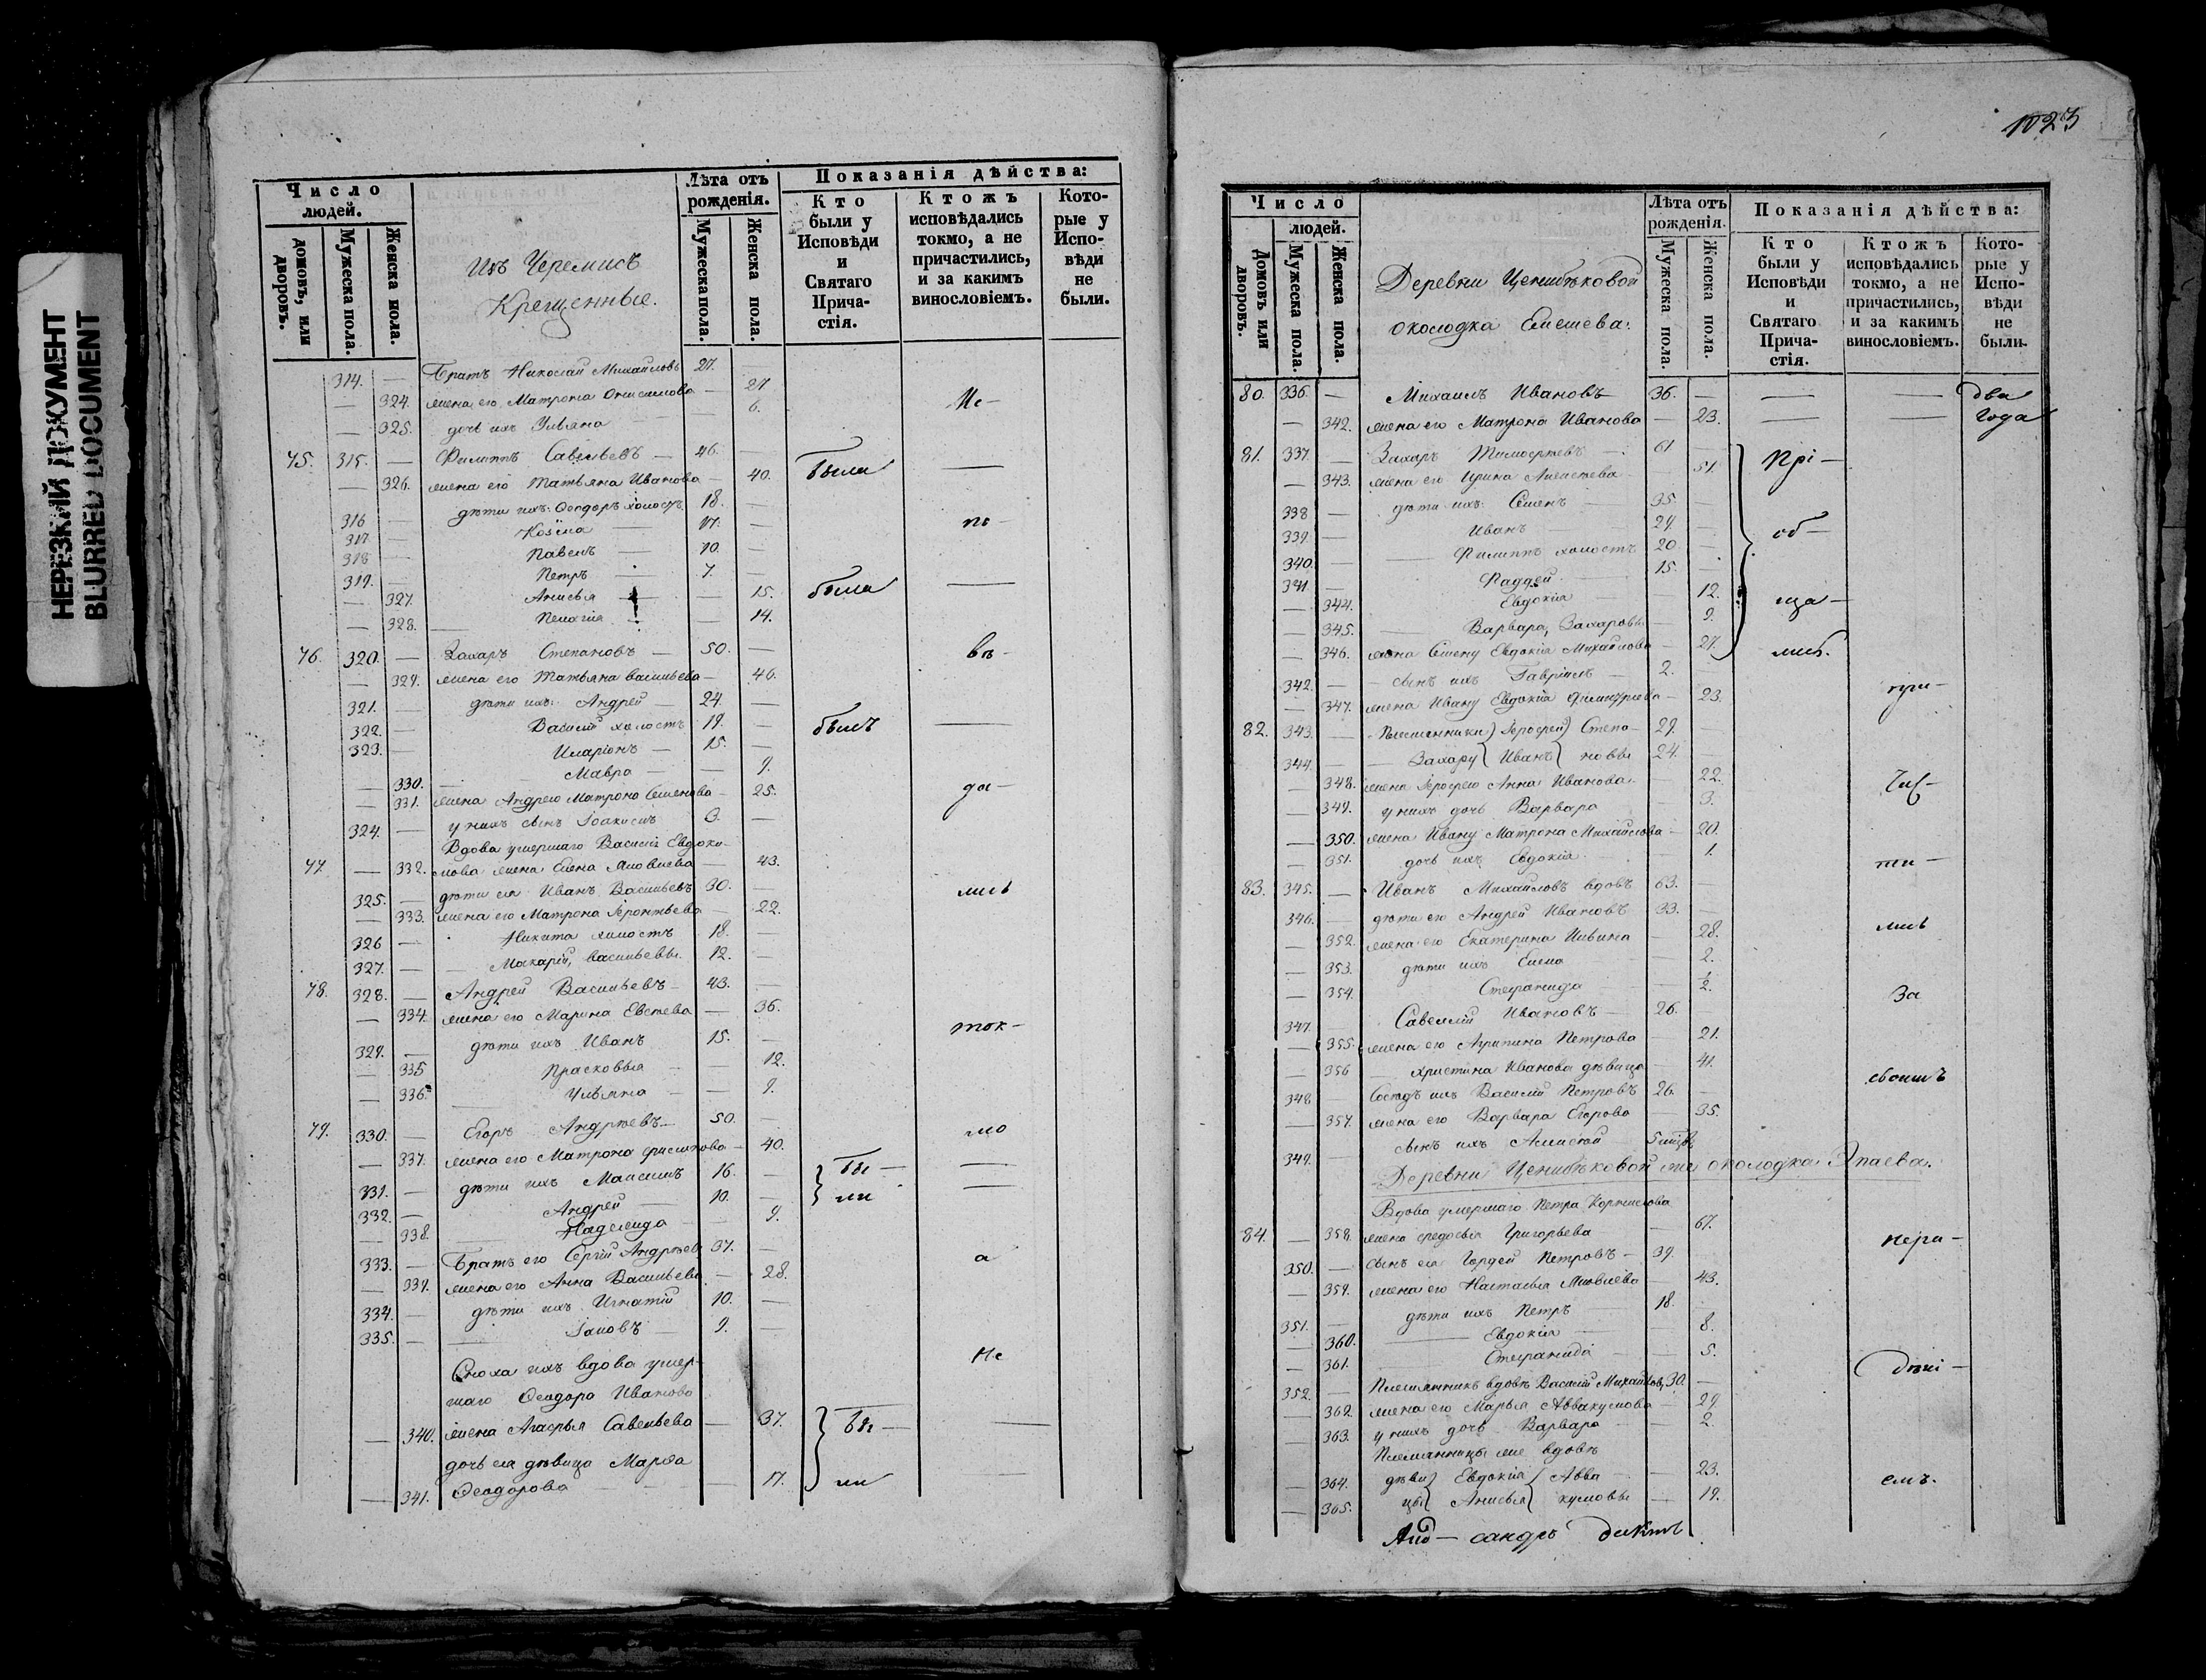 НЕРЕЗКИЙ ДОКУМЕНТ
BLURRED DOCUMENT
Число людей.
домовъ, или дворовъ.
Мужеска пола.
Женска пола.
Изъ Черемисъ
Крещенные.
Лѣта отъ рожденія.
Мужеска пола.
Женска пола.
Показанія дѣйства:
Кто были у Исповѣди и Святаго Прича-стія.
Ктожъ исповѣдались токмо, а не причастились, и за какимъ винословіемъ.
Кото-рые у Испо-вѣди не были.
314. — Братъ Николай Михайловъ 27. —
— 324. жена его Матрона Онисимова — 27
— 325. дочь ихъ Ульяна — 6. Ис-
75. 315. — Филиппъ Савельевъ — 46. —
— 326. жена его Татьяна Иванова — 40. была —
316 — дѣти ихъ: Ѳеодоръ холостъ 18. —
317 — Козма 17. — по-
318 — Павелъ — 10. —
319. — Петръ — 7. —
— 327. Анисья — 15. была —
— 328. Пелагія — 14.
76. 320. — Захаръ Степановъ — 50. — вѣ-
— 329. жена его Татьяна Васильева — 46.
321. — дѣти ихъ: Андрей — 24. —
322. — Василій холостъ 19. — былъ —
323. — Иларіонъ — 15. —
— 330. Мавра — 9.
— 331. жена Андрею Матрона Семенова — 25. да-
324. — у нихъ сынъ Іоакимъ 3. —
Вдова умершаго Василія Евдоки-
77. — 332. мова жена Елена Яковлева — 43.
325. — дѣти ея Иванъ Васильевъ 30. — лись
— 333. жена его Матрона Геронтьева — 22.
326 — Никита холостъ 18. —
327. — Макарій, Васильевы. 12. —
78. 328. — Андрей Васильевъ — 43. —
— 334. жена его Марина Евсеева — 36.
329. — дѣти ихъ Иванъ 15. — ток-
— 335 Прасковья — 12.
— 336. Ульяна — 9.
79. 330. — Егоръ Андреевъ — 50. — мо
— 337. жена его Матрона Филипова — 40.
331. — дѣти ихъ Максимъ 16. — бы- —
332. — Андрей — 10. — ли —
— 338. Надежда — 9.
333. — Братъ его Сергій Андреевъ 37. — а
— 339. жена его Анна Васильева — 28.
334. — дѣти ихъ Игнатій 10. —
335. — Іаковъ — 9. —
Сноха ихъ вдова умер- Не
шаго Ѳеодора Иванова
— 340. жена Агафья Савельева — 37. бы- —
дочь ея дѣвица Марѳа
— 341. Ѳеодорова — 17. ли —
1023
Число людей.
Домовъ или дворовъ.
Мужеска пола.
Женска пола.
Деревни Ценибѣковой
околодка Емешева.
Лѣта отъ рожденія.
Мужеска пола.
Женска пола.
Показанія дѣйства:
Кто были у Исповѣди и Святаго Прича-стія.
Ктожъ исповѣдались токмо, а не причастились, и за какимъ винословіемъ.
Кото-рые у Испо-вѣди не были.
80. 336. — Михаилъ Ивановъ 36. — — — два
— 342. жена его Матрона Иванова — 23. — — года
81. 337. — Захаръ Тимоѳеевъ — 61 — Прі-
— 343. жена его Ирина Алексеева 51.
338 — дѣти ихъ: Семенъ — 35 —
339. — Иванъ — 29. — об-
340. — Филиппъ холостъ 20 —
341 — Фаддей 15. —
— 344. Евдокія — 12. ща-
— 345. Варвара, Захаровы — 9.
— 346. жена Семену Евдокія Михайлова — 27. лись.
342. — сынъ ихъ Гавріилъ — 2. —
— 347. жена Ивану Евдокія — 23. при-
82. 343. — Племянники Степа- 29. —
344. — Захару Иванъ новы 24. —
— 348. жена Анна Иванова — 22. час-
— 349. у нихъ дочь Варвара 3.
— 350. жена Ивану Матрона Михайлова — 20.
— 351. дочь ихъ Евдокія — 1. ти-
83. 345. — Иванъ Михайловъ вдовъ 63. —
346. — дѣти его Андрей Ивановъ 33. —
— 352. жена его Екатерина — 28. лись
— 353. дѣти ихъ Елена — 2.
— 354. Стефанида ½. За
347. — Савелій Ивановъ — 26. —
— 355. жена его Агрипина Петрова — 21.
— 356 Христина Иванова дѣвица — 41. своимъ
348 — Сосѣдъ ихъ Василій Петровъ 26. —
— 357. жена его Варвара Егорова — 35.
349. — сынъ ихъ Алексѣй —
Деревни Ценибѣковой же околодка Япаева.
Вдова умершаго Петра Корнилова
84. — 358. жена Ѳедосья Григорьева — 67. нера-
350. — сынъ ея Гордей Петровъ — 39.
— 359. жена его Настасья Яковлева — 43.
351. — дѣти ихъ Петръ — 18. —
— 360. Евдокія — 8.
— 361. Стефанида — 5. дѣні-
352. — Племянникъ вдовѣ Василій Михайловъ 30. —
— 362. жена его Марья Аввакумова — 29.
— 363. у нихъ дочь Варвара — 2.
Племянницы же вдовѣ
— 364. дѣви- Евдокія Авва- — 23. емъ.
— 365. цы Анисья кумовы — 19.
сандръ